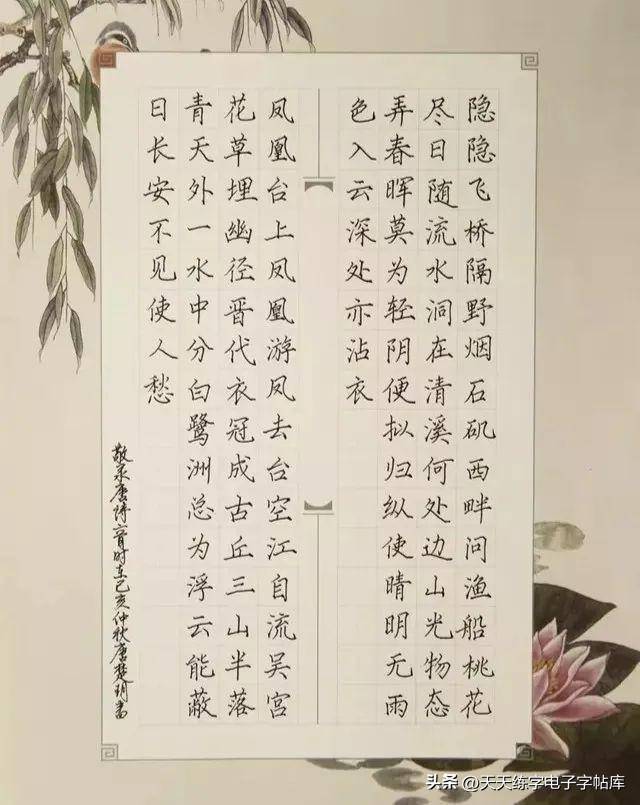 隐隐飞桥隔野烟石矶西畔问渔船桃花
尽日随流水洞在清溪何处边山光物态
弄春晖莫为轻阴便拟归纵使晴明无雨
色入云深处亦沾衣
凤凰台上凤凰游凤去台空江自流吴宫
花草埋幽径晋代衣冠成古丘三山半落
青天外一水中分白鹭洲总为浮云能蔽
日长安不见使人愁
敬录唐诗三首时在己亥仲秋唐楚玥书
头条 @天天练字电子字帖库